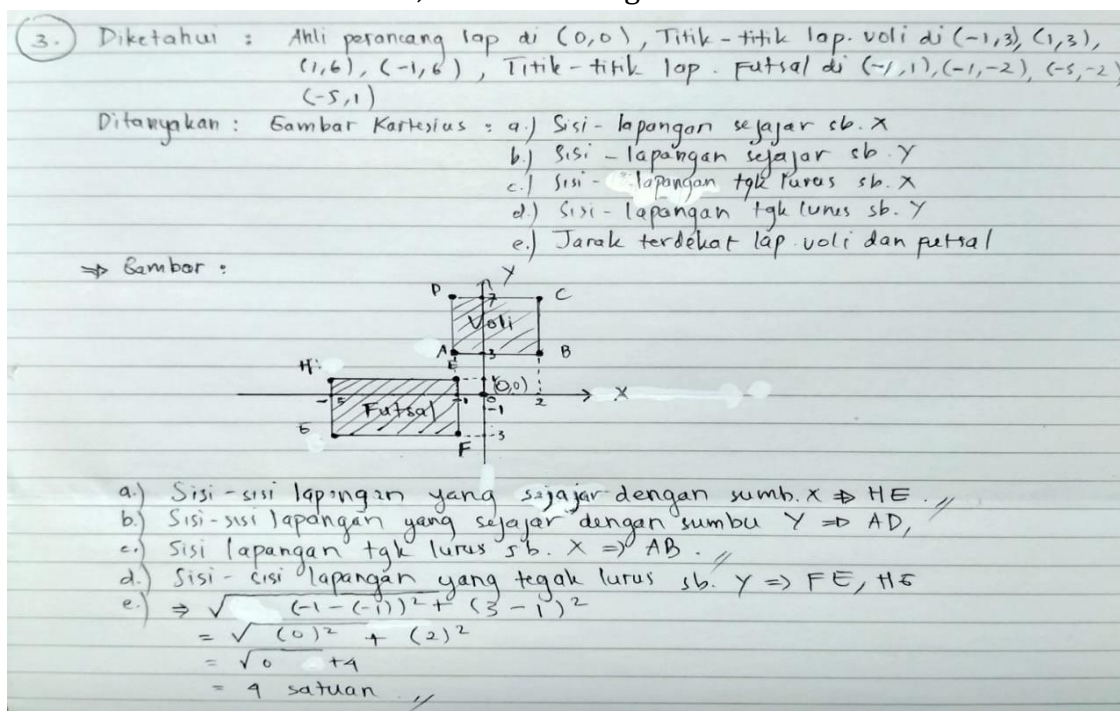 3.) Diketahui : Ahli perancang lap di (0,0), Titik-titik lap. voli di (-1,3), (1,3),
(1,6), (-1,6), Titik-titik lap. Futsal di (-1,1), (-1,-2), (-5,-2)
(-5,1)
Ditanyakan : Gambar Kartesius : a.) Sisi-lapangan sejajar sb. X
b.) Sisi-lapangan sejajar sb. Y
c.) Sisi-lapangan tgk lurus sb. X
d.) Sisi-lapangan tgk lurus sb. Y
e.) Jarak terdekat lap voli dan futsal
⇒ Gambar :
Y
D 7 C
Voli
A 3 B
H E 1
(0,0)
-5 -1 0 2 X
Futsal -1
G F -3
a.) Sisi-sisi lapangan yang sejajar dengan sumb. X ⇒ HE. //
b.) Sisi-sisi lapangan yang sejajar dengan sumbu Y ⇒ AD,
c.) Sisi lapangan tgk lurus sb. X ⇒ AB. //
d.) Sisi-sisi lapangan yang tegak lurus sb. Y ⇒ FE, HG
e.) ⇒ √(-1-(-1))² + (3-1)²
= √(0)² + (2)²
= √0 +4
= 4 satuan. //